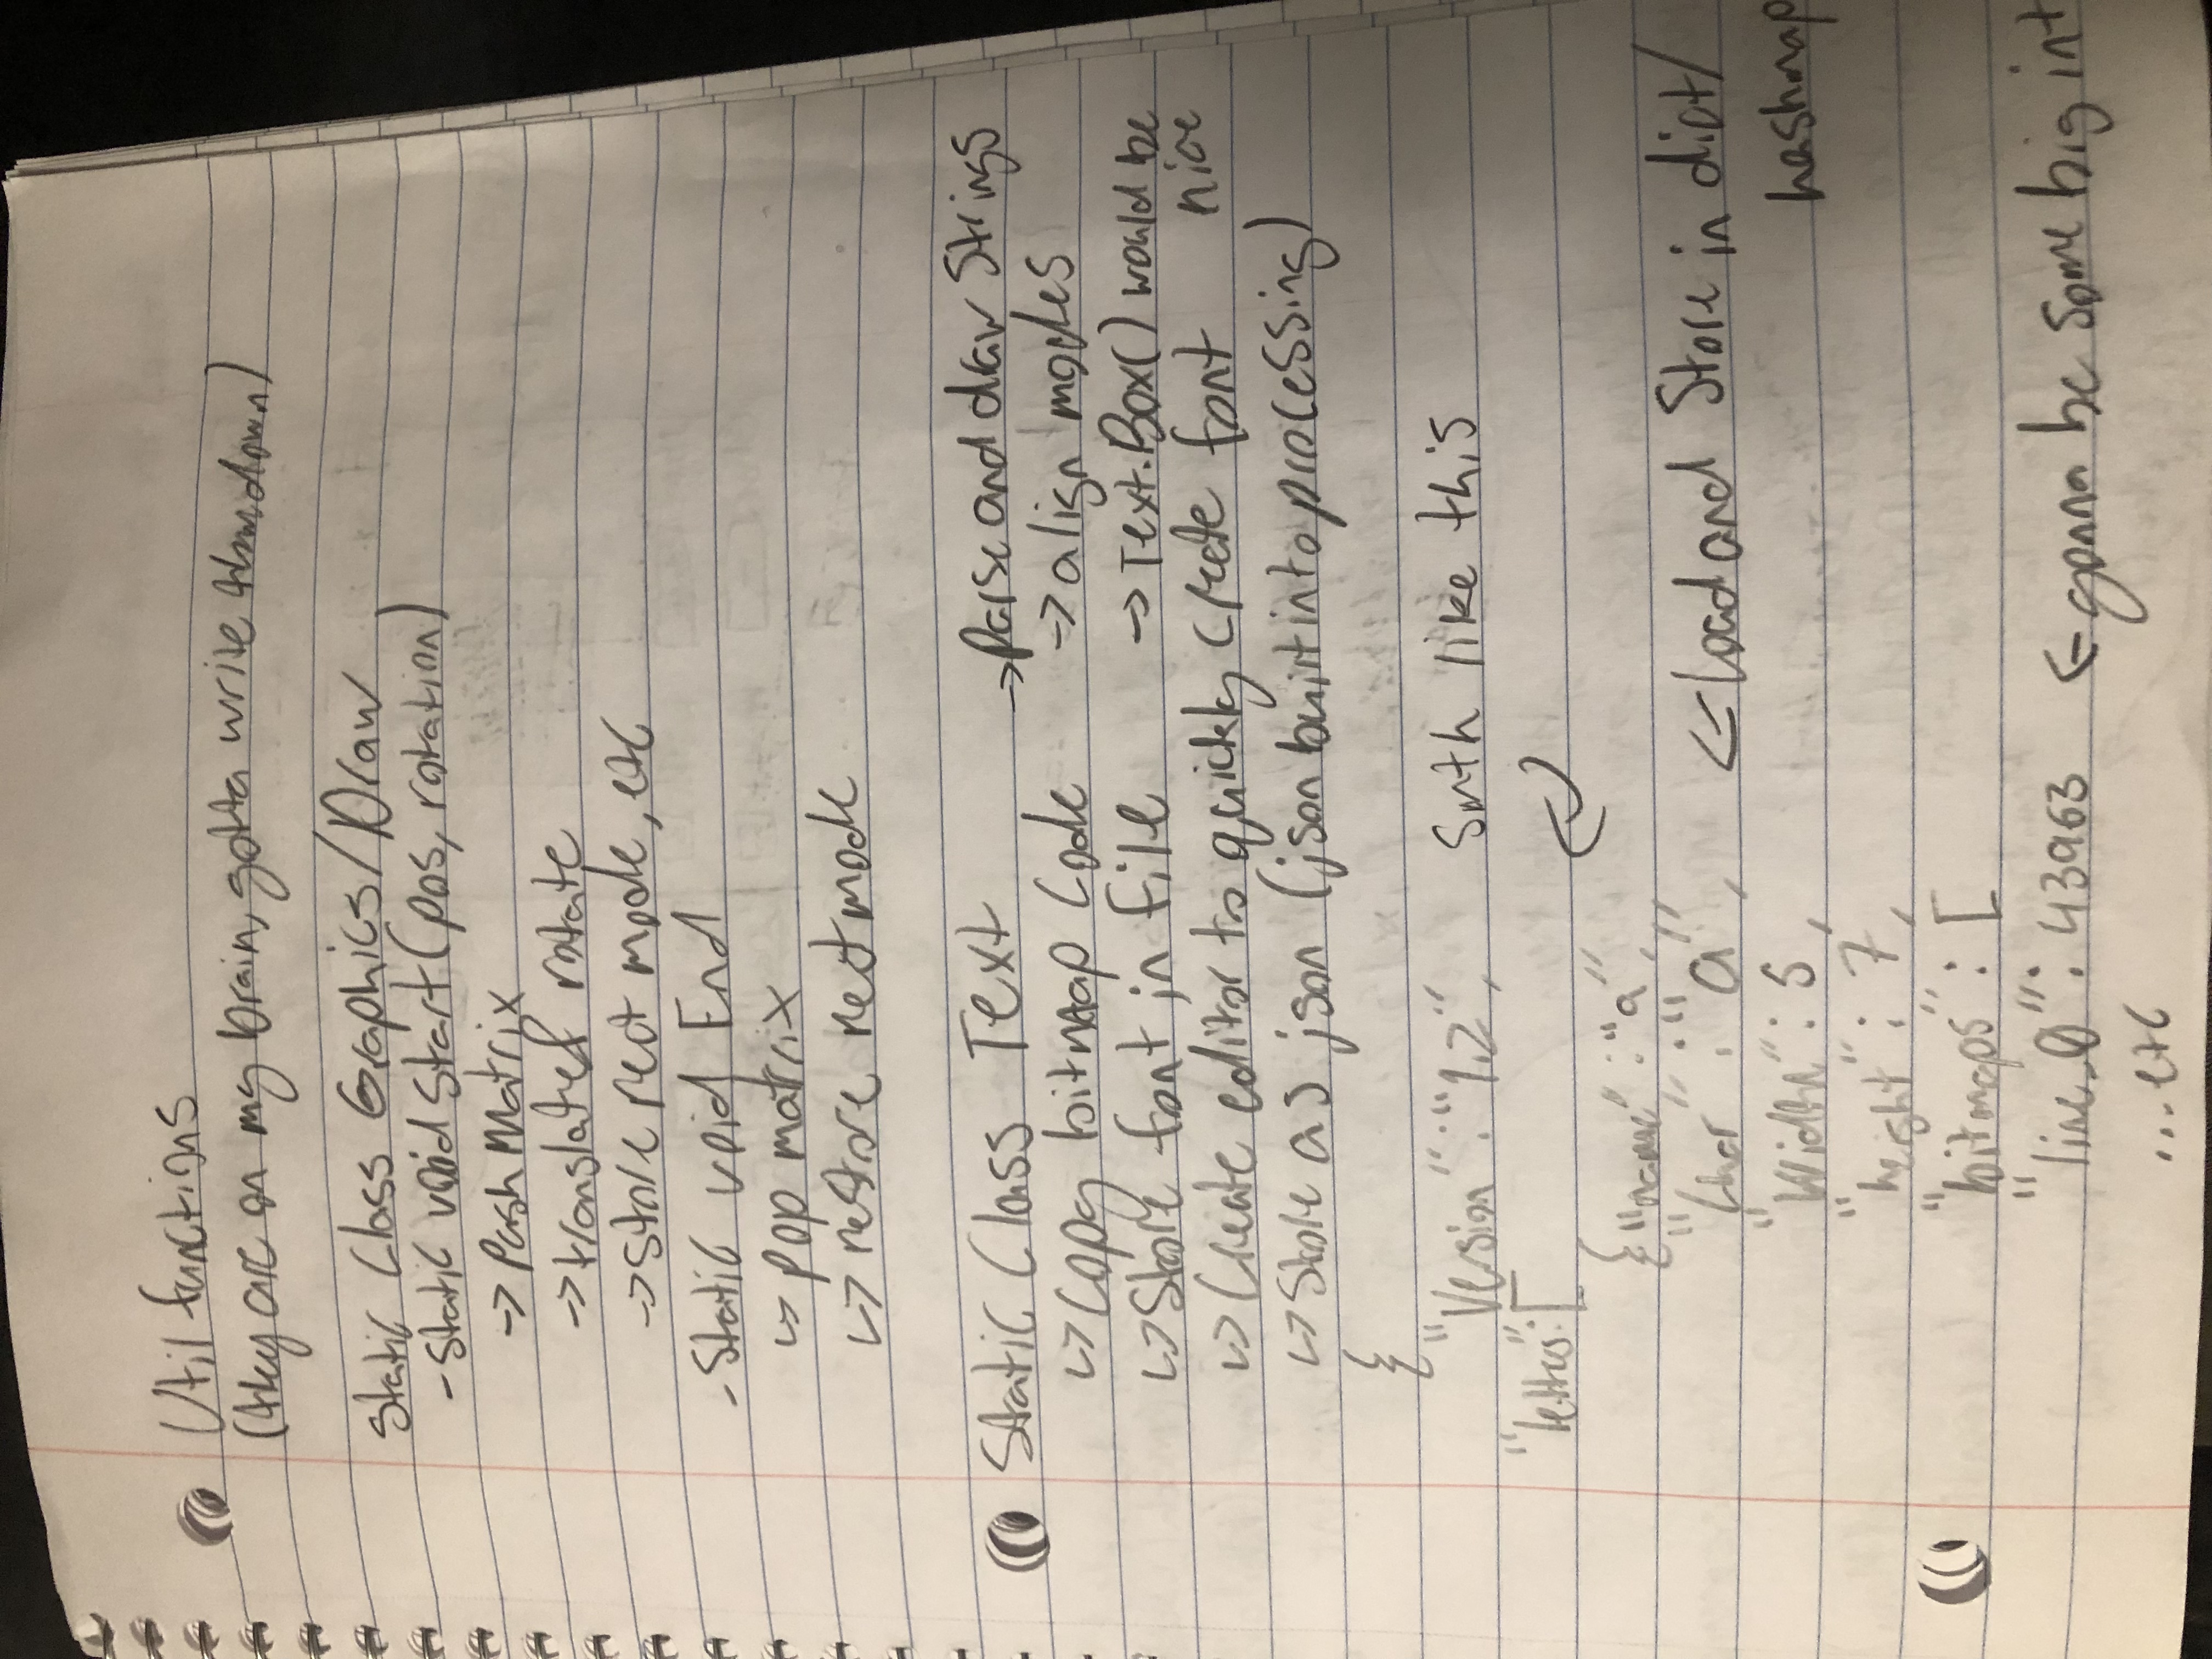 Util functions
(they are on my brain, gotta write them down)
Static Class Graphics/Draw
- Static void Start(pos, rotation)
-> Push Matrix
-> translate & rotate
-> Store rect mode, etc
- Static void End
↳ pop matrix
↳ restore rect mode
Static Class Text
↳ Copy bitmap Code
↳ Store font in file
↳ Create editor to quickly create font
↳ Store as json (json built into processing)
-> Parse and draw Strings
-> align modes
-> Text.Box() would be
nice
{
"Version": "1.2",
Smth like this
"letters": [
{"name": "a",
"Char": "a",
<- Load and Store in dict/
hashmap
"Width": 5,
"height": 7,
"bitmaps": [
"line_0": 43963
<- gonna be some big int
...etc